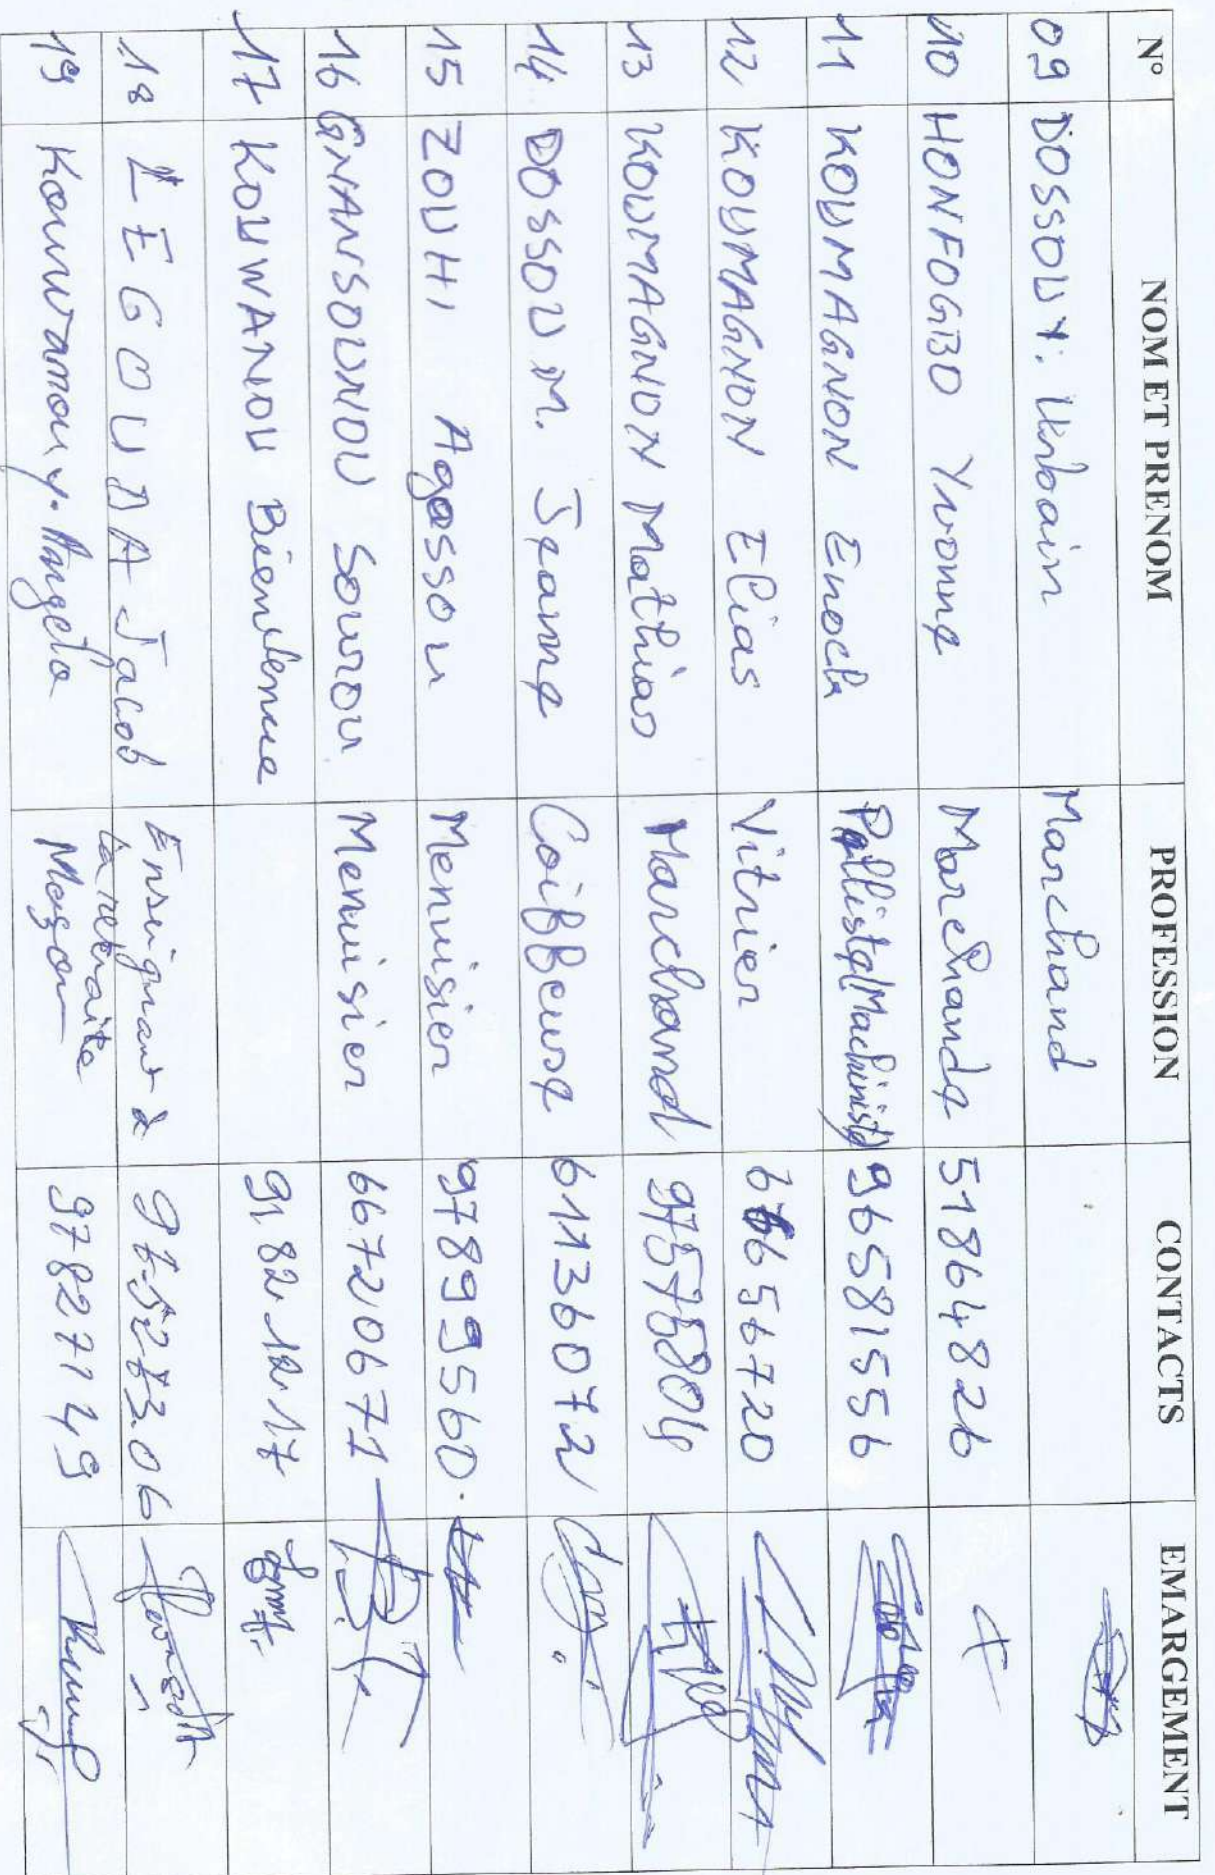 N° NOM ET PRENOM PROFESSION CONTACTS EMARGEMENT
09 DOSSOU Y. Urbain Marchand
10 HONFOGBO Yvonne Marchande 51864826
11 KOUMAGNON Enoch (Machiniste) 96581556
12 KOUMAGNON Elias Vitrier 66656720
13 KOUMAGNON Mathias Marchand
14 DOSSOU M. Jeanne Coiffeuse 61136072
15 ZOUHI Agossou Menuisier 97899560.
16 GNANSOUNOU Sourou Menuisier 66720671
17 KOUWANOU Bienvenue 91.82.12.17
18 LEGOUDA Jacob Enseignant à
la retraite
19 Kouwanou Y. Angelo Maçon 97827149